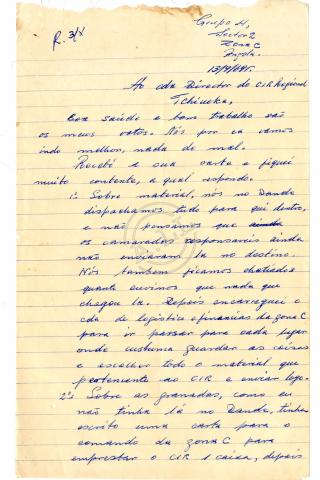 R. 3/X
Grupo H,
Sector 2
Zona C
Angola.
13/9/69.
Ao cda Director do CIR Regional
Tchiweka,
Boa saúde e bom trabalho são
os meus votos. Nós por cá vamos
indo melhor, nada de mal.
Recebi a sua carta e fiquei
muito contente, a qual respondo.
1º Sobre material, nós no Dande
dispachamos tudo para qui dentro,
e não pensamos que
os camaradas responsaveis ainda
não enviaram lá no destino.
Nós tambem ficamos chatiados
quanto ouvimos que nada que
chegou lá. Depois encarreguei o
cda de logística e financias da zona C
para ir passar para cada lugar
onde custuma guardar as coisas
e escolher todo o material que
pertencente ao CIR e enviar logo.
2º Sobre as granadas, como eu
não tinha lá no Dande, tinha
escrito uma carta para o
comando da zona C para
emprestar o CIR 1 caixa, depois